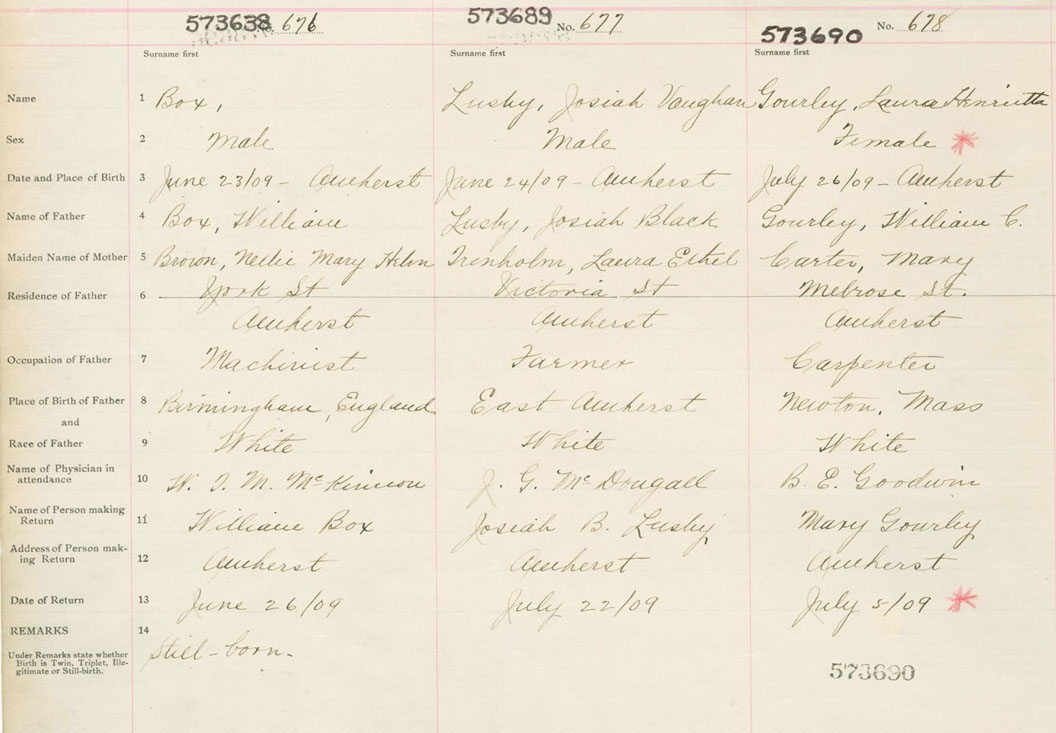 573638 No. 676 573689 No. 677 573690 No. 678
Surname first Surname first Surname first
Name 1 Box, Lusby, Josiah Vaughan Gourley, Laura Henrietta
Sex 2 Male Male Female
Date and Place of Birth 3 June 23/09 - Amherst June 24/09 - Amherst July 26/09 - Amherst
Name of Father 4 Box, William Lusby, Josiah Black Gourley, William C.
Maiden Name of Mother 5 Brown, Nellie Mary Helen Trenholm, Laura Ethel Carter, Mary
Residence of Father 6 York St Victoria St Melrose St.
Amherst Amherst Amherst
Occupation of Father 7 Machinist Farmer Carpenter
Place of Birth of Father 8 Birmingham, England East Amherst Newton, Mass
and
Race of Father 9 White White White
Name of Physician in
attendance 10 W. T. M. McKinnon J. G. McDougall B. E. Goodwin
Name of Person making
Return 11 William Box Josiah B. Lusby Mary Gourley
Address of Person mak-
ing Return 12 Amherst Amherst Amherst
Date of Return 13 June 26/09 July 22/09 July 5/09
REMARKS 14
Under Remarks state whether
Birth is Twin, Triplet, Ille-
gitimate or Still-birth.
Still-born.
573690